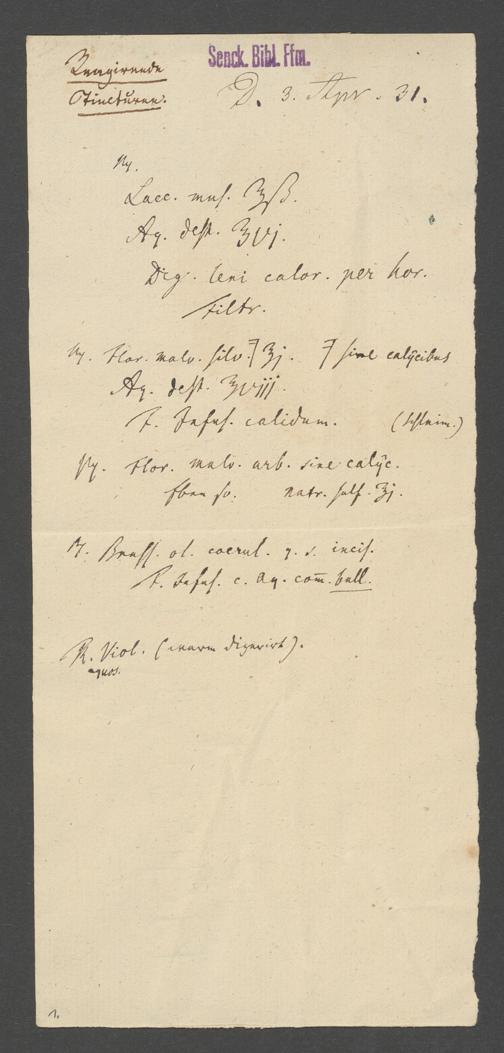 Reagirende
Tincturen.
Senck. Bibl. Ffm.
D. 3. Apr. 31.
Lacc. mus. ʒß.
Aq. dest. ʒvj.
Dig. leni calor. per hor.
filtr.
Flor. malv. silv. ʒj. sine calycibus
Aq. dest. ʒviij.
F. Infus. calidum. (Schleim.)
Flor. malv. arb. sine calyc.
Eben so. natr. sulf. ʒj.
Brass. ol. coerul. q. s. incis.
F. Infus. c. aq. com̄. bull.
R. Viol. (warm digerirt).
aquos.
1.